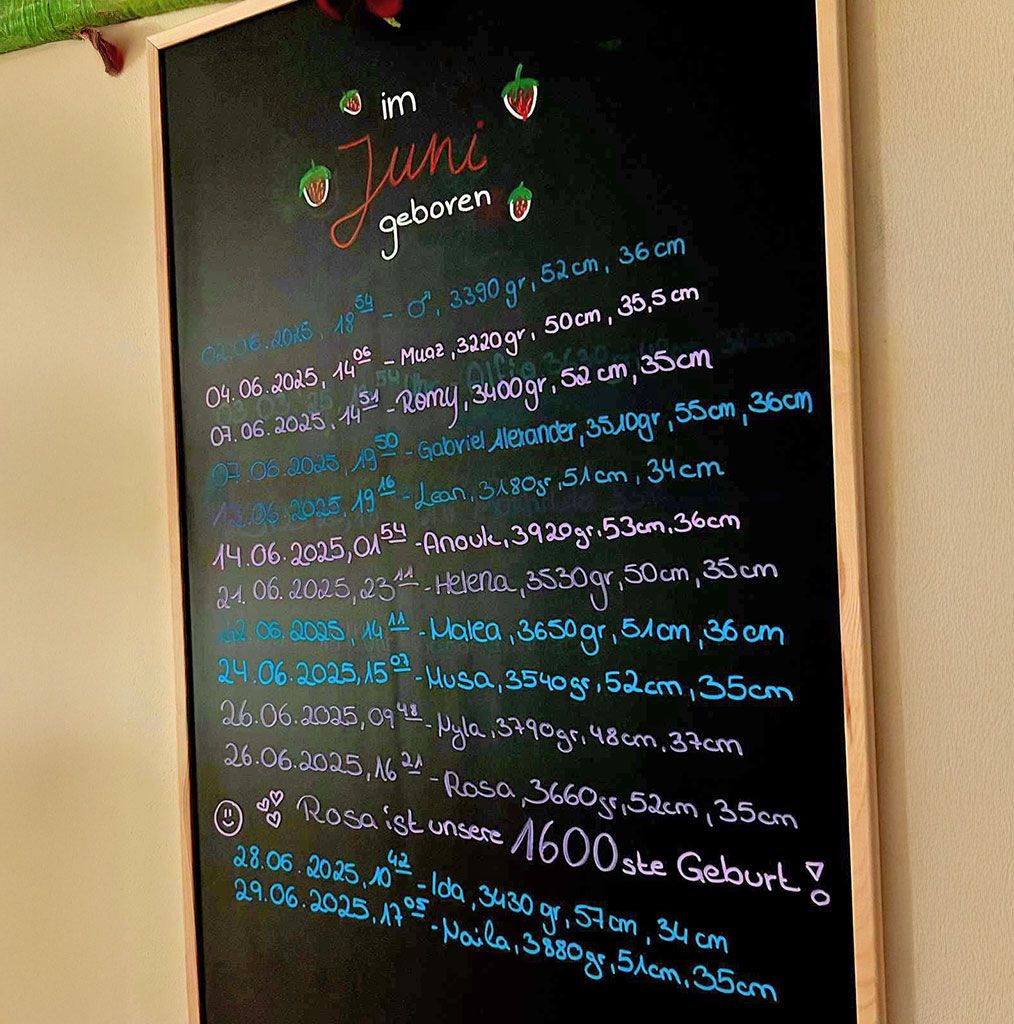 im
Juni
geboren
02.06.2025, 18⁵⁴ - ♂, 3390gr, 52cm, 36cm
04.06.2025, 14⁰⁶ - Muaz, 3220gr, 50cm, 35,5cm
07.06.2025, 14⁵¹ - Romy, 3400gr, 52cm, 35cm
07.06.2025, 19⁵⁰ - Gabriel Alexander, 3510gr, 55cm, 36cm
12.06.2025, 19¹⁶ - Lean, 3180gr, 51cm, 34cm
14.06.2025, 01⁵⁴ - Anouk, 3920gr, 53cm, 36cm
21.06.2025, 23¹¹ - Helena, 3530gr, 50cm, 35cm
22.06.2025, 14¹¹ - Malea, 3650gr, 51cm, 36cm
24.06.2025, 15⁰⁷ - Musa, 3540gr, 52cm, 35cm
26.06.2025, 09⁴⁸ - Nyla, 3790gr, 48cm, 37cm
26.06.2025, 16²¹ - Rosa, 3660gr, 52cm, 35cm
Rosa ist unsere 1600ste Geburt!
28.06.2025, 10⁴² - Ida, 3430gr, 57cm, 34cm
29.06.2025, 17⁰⁵ - Naila, 3880gr, 51cm, 35cm